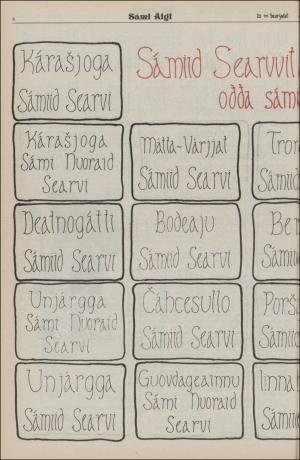 Sámi Áigi
Kárašjoga
Sámiid Searvi
Sámiid Searvvit
ođđa sámi
Kárašjoga
Sámi Nuoraid
Searvi
Mátta-Várjjat
Sámiid Searvi
Sámiid
Deatnogátti
Sámiid Searvi
Bodeaju
Sámiid Searvi
Sámiid
Unjárgga
Sámi Nuoraid
Searvi
Čáhcesullo
Sámiid Searvi
Sámiid
Unjárgga
Sámiid Searvi
Guovdageainnu
Sámi Nuoraid
Searvi
Sámiid